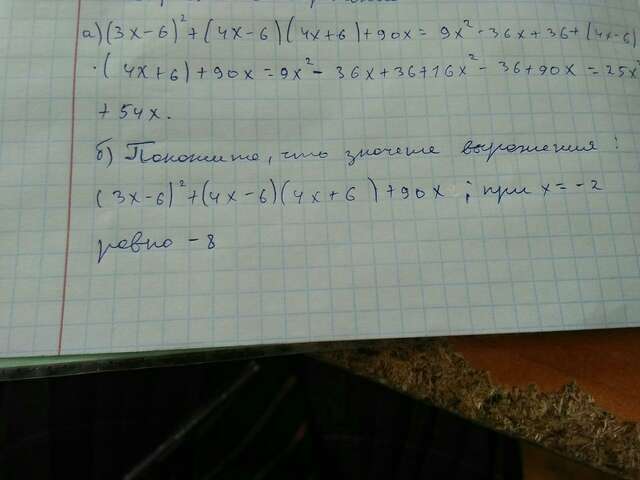 а) (3x-6)² + (4x-6) (4x+6) + 90x = 9x² - 36x + 36 + (4x-6)
· (4x+6) + 90x = 9x² - 36x + 36 + 16x² - 36 + 90x = 25x²
+ 54x.
б) Покажите, что значение выражения:
(3x-6)² + (4x-6) (4x+6) + 90x ; при x = -2
равно -8